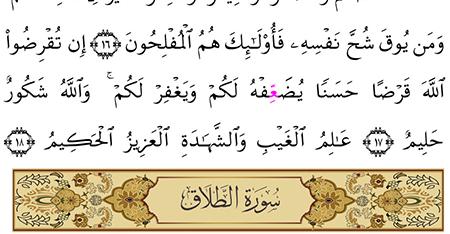 وَمَن يُوقَ شُحَّ نَفْسِهِۦ فَأُو۟لَـٰٓئِكَ هُمُ ٱلْمُفْلِحُونَ ﴿١٦﴾ إِن تُقْرِضُوا۟
ٱللَّهَ قَرْضًا حَسَنًا يُضَـٰعِفْهُ لَكُمْ وَيَغْفِرْ لَكُمْ ۚ وَٱللَّهُ شَكُورٌ
حَلِيمٌ ﴿١٧﴾ عَـٰلِمُ ٱلْغَيْبِ وَٱلشَّهَـٰدَةِ ٱلْعَزِيزُ ٱلْحَكِيمُ ﴿١٨﴾
سُورَةُ الطَّلَاقِ